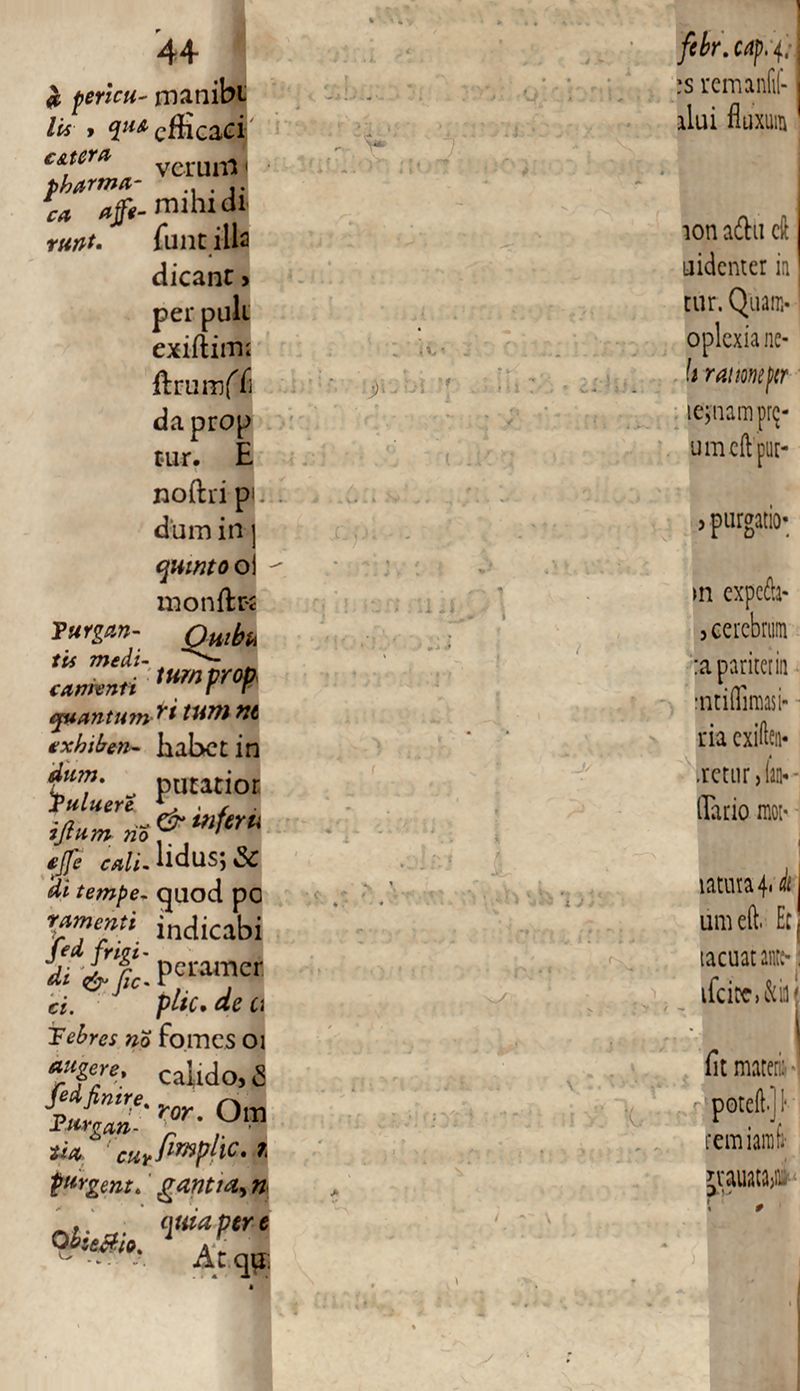 44
à pericu-
lis, quæ
cætera
pharma-
ca affe-
runt.
manibu
efficaci
verum
mihi di
ſunt illa
dicant,
per pul
exiſtim
ſtrum
da prop
tur. E
noſtri p
dum in
quinto o
monſtra
Quibu
tum prop
ri tum ne
habet in
putatior
& inferi
lidus; &
quod po
indicabi
peramen
plic. de
fomes o
calido, &
ror. Om
ſimplic.
gantia, n
quia per e
At qu
Purgan-
tis medi-
camenti
quantum
exhiben-
dum.
Puluerē
iſtum nō
eſſe cali-
di tempe-
ramenti
ſed frigi-
di & ſic-
ci.
Febres nō
augere,
ſed finire.
Purgan-
tia cur
purgent.
Obiectio.
febr. cap. 4.
es remanſiſ-
alui fluxum
non actu eſt
uidenter in
tur. Quam-
oplexia ne-
ratione per
ie; nam prę-
um eſt pur-
, purgatio-
in expecta-
, cerebrum
ta pariter in
ntiſſimas i-
ria exiſten-
retur, ſan-
ſſario mor-
natura 4. de
um eſt. Et
tacuat ante-
iſcite, & in
fit materia
poteſt.]
rem iam
grauata,